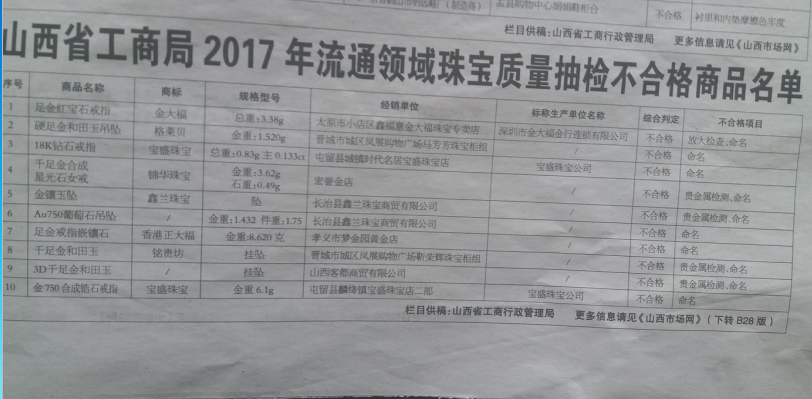 孟县购物中心娟娟鞋柜台 不合格 衬里和内垫摩擦色牢度
栏目供稿：山西省工商行政管理局 更多信息请见《山西市场网》
山西省工商局2017年流通领域珠宝质量抽检不合格商品名单
序号 商品名称 商标 规格型号 经销单位 标称生产单位名称 综合判定 不合格项目
1 足金红宝石戒指 金大福 总重：3.38g 太原市小店区鑫福意金大福珠宝专卖店 深圳市金大福金行连锁有限公司 不合格 放大检查、命名
2 硬足金和田玉吊坠 格莱贝 金重：1.520g 晋城市城区凤展购物广场马芳芳珠宝柜组 / 不合格 命名
3 18K钻石戒指 宝盛珠宝 总重：0.83g 主 0.133ct 屯留县城镇时代名居宝盛珠宝店 宝盛珠宝公司 不合格 命名
4 千足金合成星光石女戒 锦华珠宝 金重：3.62g 石重：0.49g 宏誉金店 / 不合格 贵金属检测、命名
5 金镶玉坠 鑫兰珠宝 坠 长治县鑫兰珠宝商贸有限公司 / 不合格 贵金属检测、命名
6 Au750葡萄石吊坠 / 金重：1.432 件重：1.75 长治县鑫兰珠宝商贸有限公司 / 不合格 命名
7 足金戒指嵌镶石 香港正大福 金重：8.620克 孝义市梦金园黄金店 / 不合格 命名
8 千足金和田玉 铭贵坊 挂坠 晋城市城区凤展购物广场靳荣辉珠宝柜组 / 不合格 贵金属检测、命名
9 3D千足金和田玉 / 挂坠 山西客都商贸有限公司 / 不合格 贵金属检测、命名
10 金750合成锆石戒指 宝盛珠宝 金重6.1g 屯留县麟绛镇宝盛珠宝店二部 宝盛珠宝公司 不合格 命名
栏目供稿：山西省工商行政管理局 更多信息请见《山西市场网》（下转B28版）